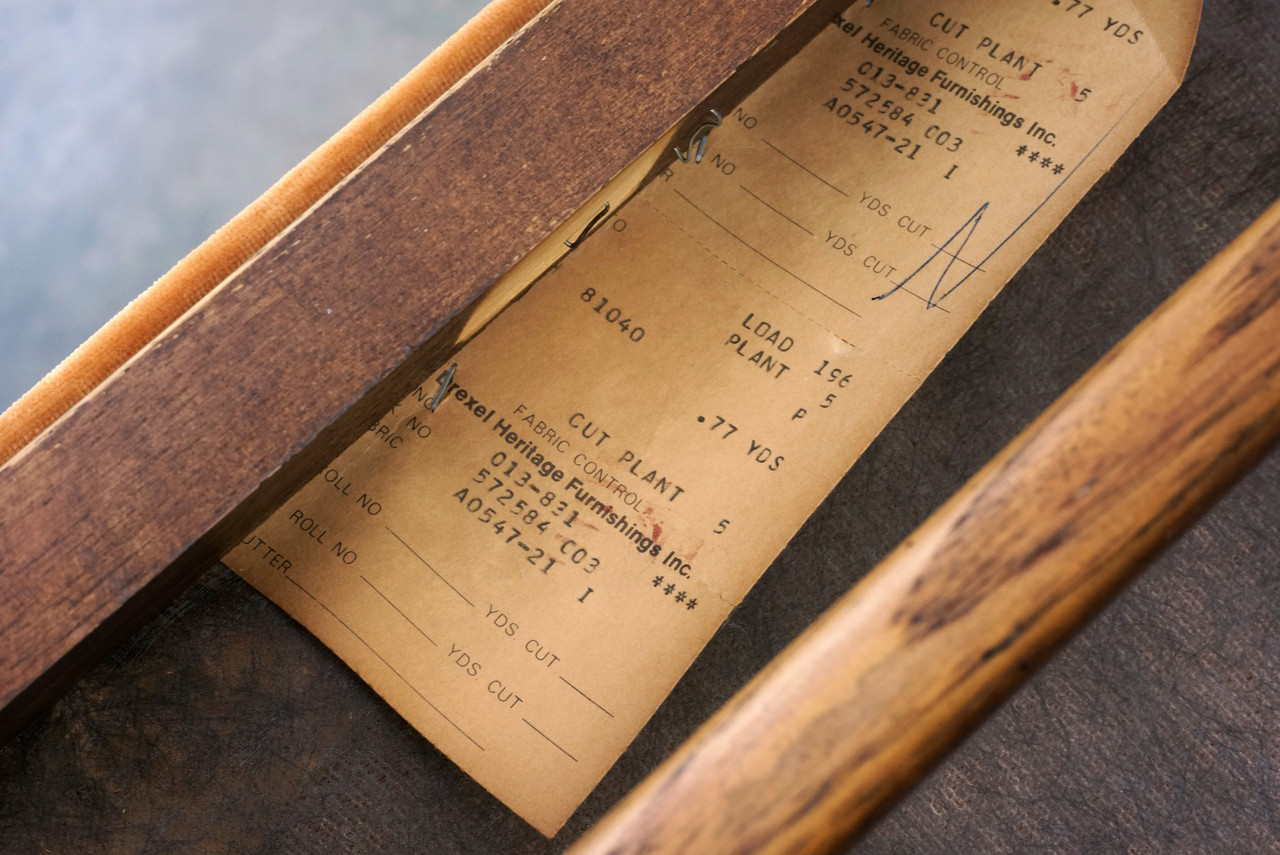 .77 YDS
CUT PLANT 5
FABRIC CONTROL
Heritage Furnishings Inc.
013-831
572584 C03 ****
A0547-21 I
NO YDS CUT
NO YDS CUT
81040 LOAD 196
PLANT 5
P
.77 YDS
CUT PLANT 5
FABRIC CONTROL
Drexel Heritage Furnishings Inc.
013-831
572584 C03 ****
A0547-21 I
NO
NO
ROLL NO YDS. CUT
ROLL NO YDS. CUT